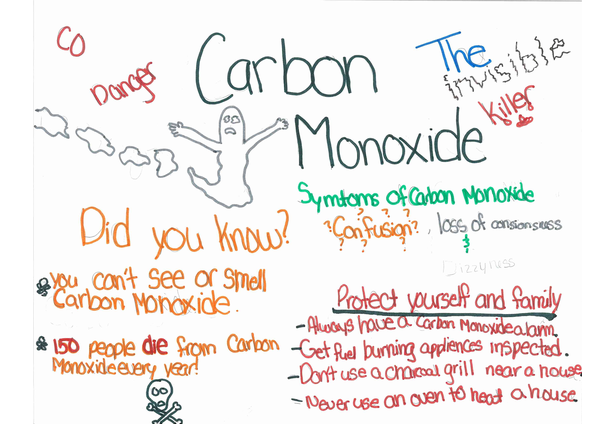 CO
Danger
Carbon
Monoxide
The
invisible
Killer
Symtoms of Carbon Monoxide
?Confusion?, loss of consionsness
Dizzyness
Did you know?
you can't see or smell
Carbon Monoxide.
150 people die from Carbon
Monoxide every year!
Protect yourself and family
-Always have a Carbon Monoxide alarm.
-Get fuel burning appliances inspected.
-Don't use a charcoal grill near a house
-Never use an oven to heat a house.